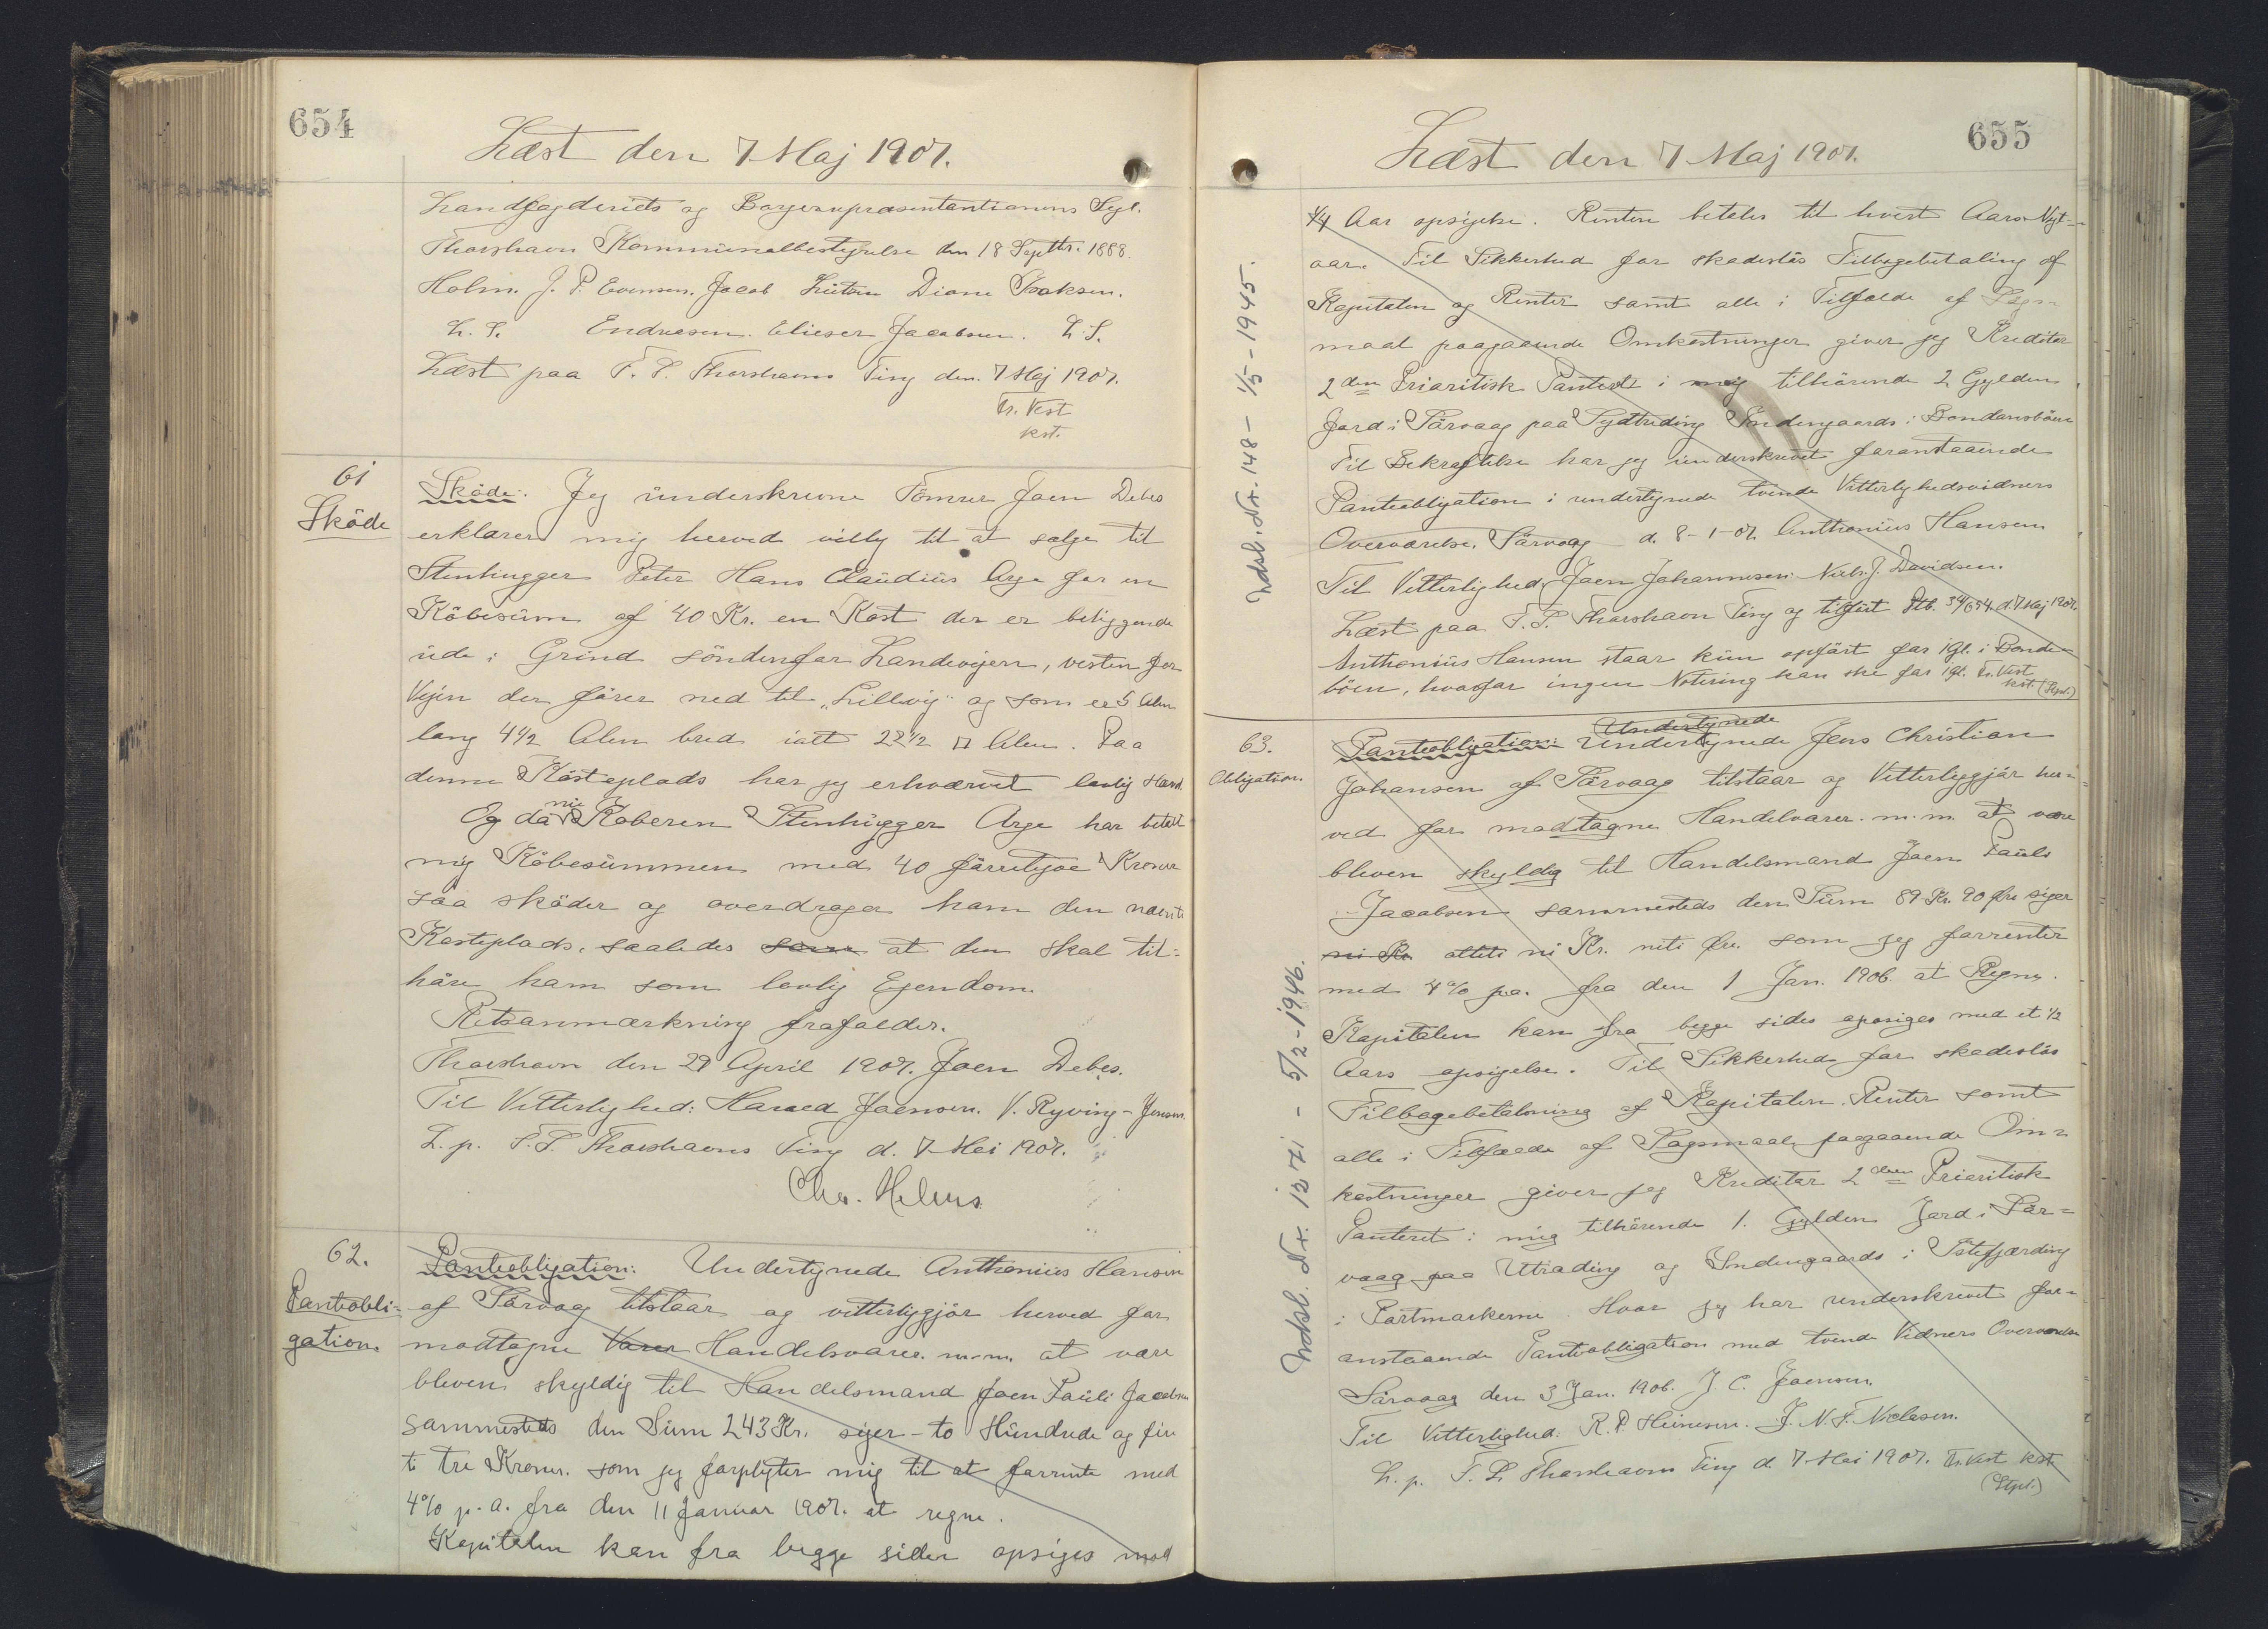 654
Læst den 7 Maj 1907.
Landfogderiets og Borgerrepræsentantionens Segl.
Thorshavn Kommunalbestyrelse den 18 Septbr. 1888.
Holm. J. P. Evensen. Jacob Lützen Isaksen.
L. S. Endresen. Elieser Jacobsen. L. S.
Læst paa T. S. Thorshavns Ting den 7 Maj 1907.
Tr. Vest
kst.
61
Sköde
Sköde: Jeg underskrevne Tömrer Joen Debes
erklærer mig herved villig til at sælge til
Stenhugger Peter Hans Claudius Arge for en
Köbesum af 40 Kr. en Kost der er beliggende
ude i Grind söndenfor Landevejen, vesten for
Vejen der förer ned til "Lillevig" og som er 5 Alen
lang 4 1/2 Alen bred ialt 22 1/2 □ Alen. Paa
denne Kosteplads har jeg erhværvet lovlig Hævd.
Og da nu Köberen Stenhugger Arge har betalt
mig Köbesummen med 40 förretyve Kroner
saa sköder og overdrager ham den nævnte
Kosteplads, saaledes som at den skal til=
höre ham som lovlig Ejendom.
Retsanmærkning frafalder.
Thorshavn den 29 April 1907. Joen Debes.
Til Vitterlighed: Harald Joensen. V. Ryving-Jensen.
L. p. T. S. Thorshavns Ting d. 7 Mai 1907.
Chr. Helms
62.
Pantobli=
gation.
Panteobligation: Undertegnede Anthonius Hansen
af Sörvaag tilstaar og vitterliggjör herved for
modtagne Varer Handelsvarer m.m. at være
bleven skyldig til Handelsmand Joen Pauli Jacobsen
sammesteds den Sum 243 Kr. siger - to Hundrede og fir
ti tre Kroner. som jeg forpligter mig til at forrente med
4% p.a. fra den 11 Januar 1907. at regne.
Kapitalen kan fra begge sider opsiges med
655
Læst den 7 Maj 1907.
Indsl. Nr. 148 - 1/5 - 1945.
1/4 Aar opsigelse. Renten betales til hvert Aars Nyt=
aar. Til Sikkerhed for skadeslös Tilbagebetaling af
Kapitalen og Renter samt alle i Tilfælde af Søgs=
maal paagaaende Omkostninger giver jeg Kreditor
2den Prioritisk Panteret i mig tilhörende 2 Gylden
Jord i Sörvaag paa Sydtreding Indengaards i Bondansböen
Til Bekræftelse har jeg underskrevet foranstaaende
Panteobligation i undertegnede tvende Vitterlighedsvidners
Overværelse. Sörvaag d. 8-1-07. Anthonius Hansen
Til Vitterlighed Joen Johannesen. Niels J. Davidsen.
Læst paa T. S. Thorshavn Ting og tilfört Ptb. 34/654 d. 7 Maj 1907.
Anthonius Hansen staar kun opfört for 1 Gl. i Bonde=
böen, hvorfor ingen Notering kan ske for 1 gl. Tr. Vest
kst. (Stpl.)
63.
Obligation.
Undertegnede
Panteobligation: Undertegnede Jens Christian
Johansen af Sörvaag tilstaar og Vitterliggjör her=
ved for modtagne Handelvarer. m.m. at være
bleven skyldig til Handelsmand Joen Pauli
Jacobsen sammesteds den Sum 89 Kr. 90 Øre siger
ni Kr otteti ni Kr. niti Øre. som jeg forrenter
med 4% p.a. fra den 1 Jan. 1906. at Regne.
Kapitalen kan fra begge sider opsiges med et 1/2
Aars opsigelse. Til Sikkerhed for skadeslös
Tilbagebetalning af Kapitalen. Renter samt
alle i Tilfælde af Sagsmaal paagaaende Om=
kostninger giver jeg Kreditor 2den Prioritisk
Panteret i mig tilhörende 1. Gylden Jord i Sör=
vaag paa Utrading og Indengaards i Östefjærding
i Partmarkerne. Hvor jeg har underskrevet for=
anstaaende Pantobligation med tvende Vidners Overværelse
Sörvaag den 3 Jan. 1906. J. C. Joensen.
Til Vitterlighed: R. P. Heinesen. J. N. F. Niclasen.
L. p. T. S. Thorshavns Ting d. 7 Mai 1907. Tr. Vest kst
(Stpl.)
Indsl. Nr. 1271 - 5/2 - 1946.